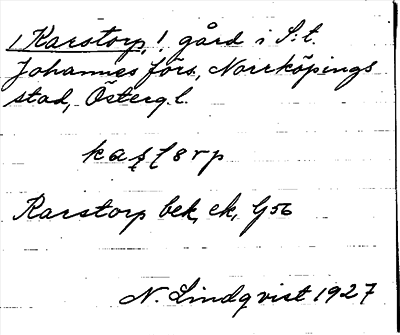 / Karstorp, / gård i S:t.
Johannes förs., Norrköpings
stad, Östergl.
Karstorp bek, ek, G 56
N. Lindqvist 1927